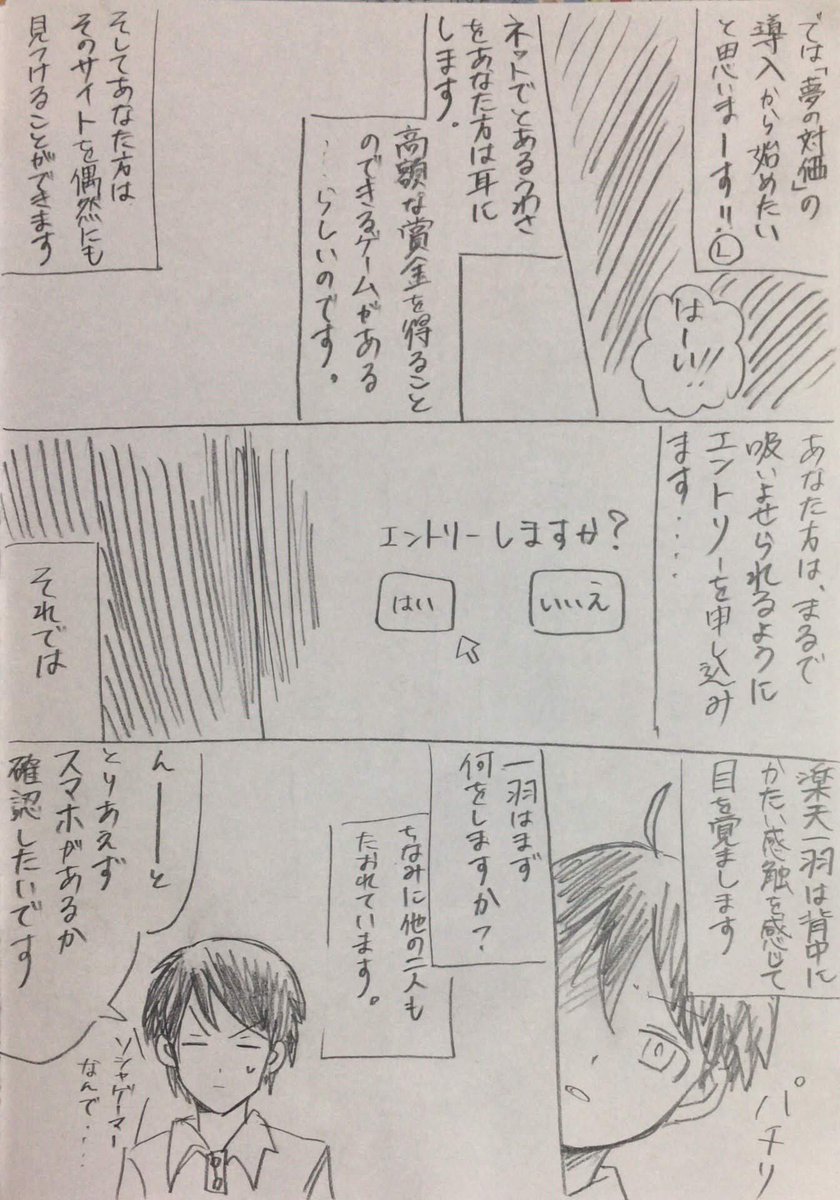 では「夢の対価」の
導入から始めたい
と思いまーす!!
Ⓛ
はーい!!
ネットでとあるうわさ
をあなた方は耳に
します。
高額な賞金を得ること
のできるゲームがある
……らしいのです。
そしてあなた方は
そのサイトを偶然にも
見つけることができます
あなた方は、まるで
吸いよせられるように
エントリーを申し込み
ます‥‥
エントリーしますか?
はい
いいえ
それでは
楽天一羽は背中に
かたい感触を感じて
目を覚まします
パチリ
一羽はまず
何をしますか?
ちなみに他の二人も
たおれています。
んーーと
とりあえず
スマホがあるか
確認したいです
ソシャゲーマー
なんで‥‥